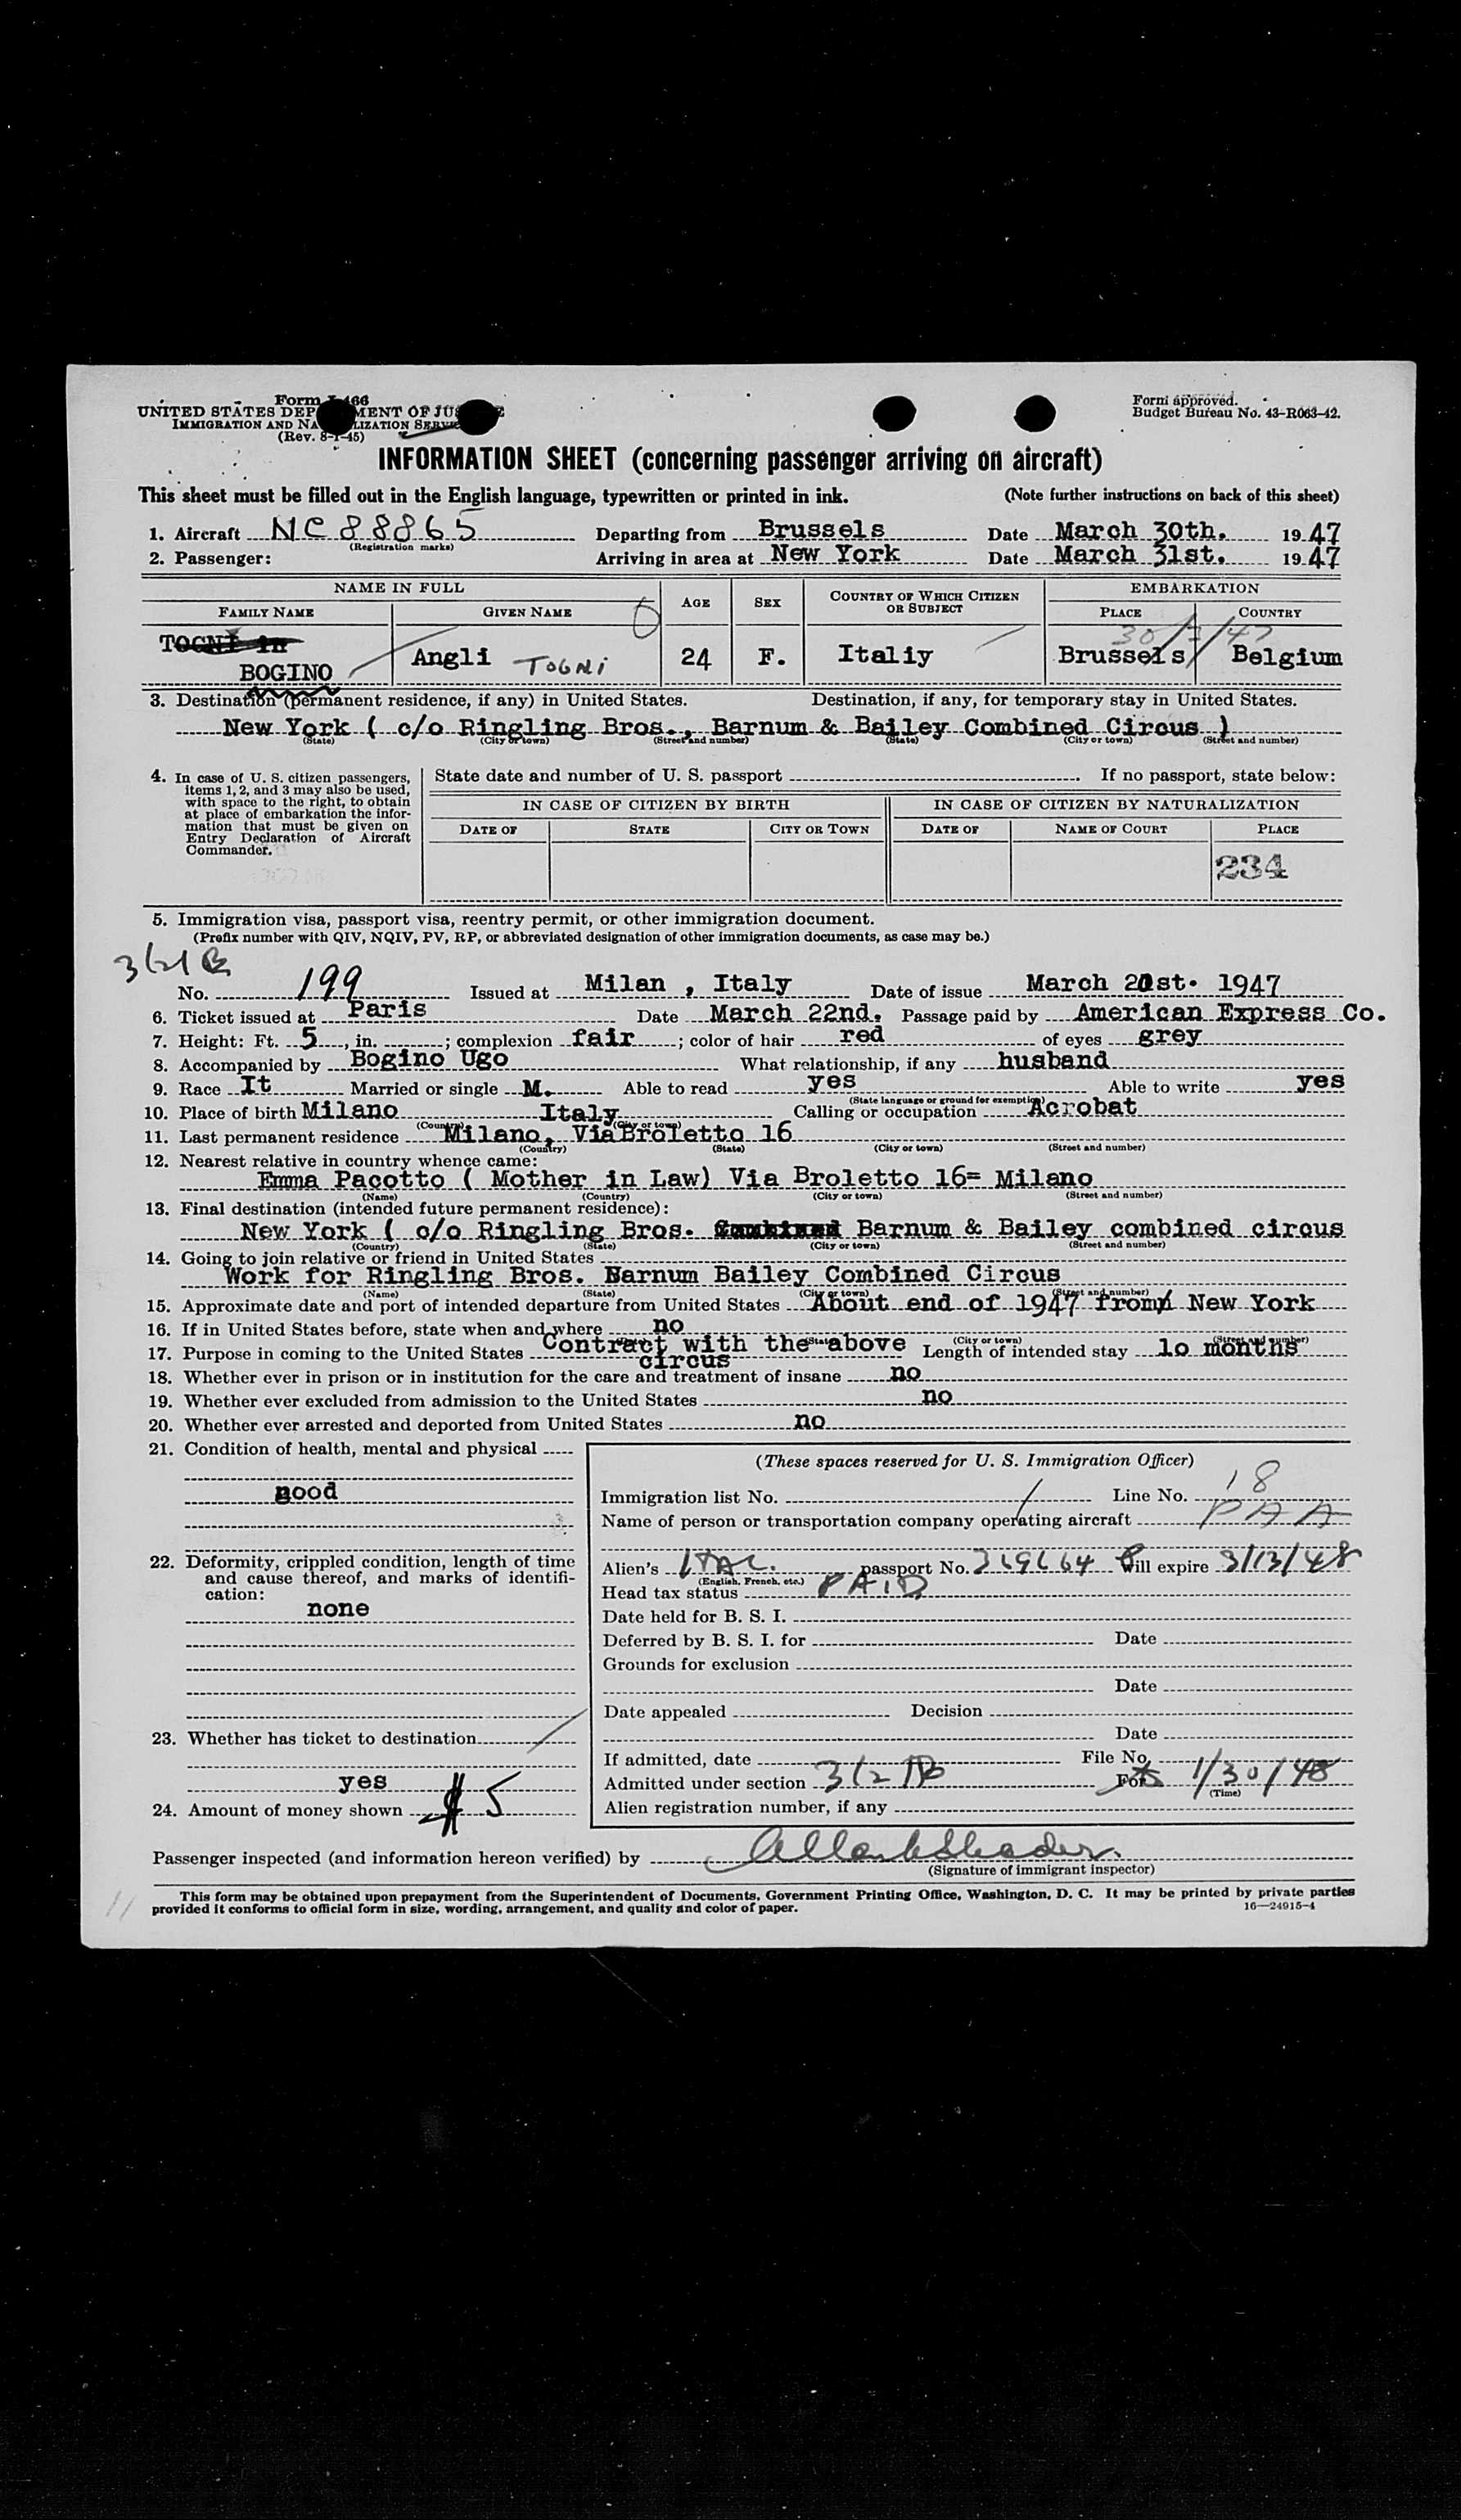 Form I-466
UNITED STATES DEPARTMENT OF JUSTICE
IMMIGRATION AND NATURALIZATION SERVICE
(Rev. 8-1-45)
Form approved.
Budget Bureau No. 43-R063-42.
INFORMATION SHEET (concerning passenger arriving on aircraft)
This sheet must be filled out in the English language, typewritten or printed in ink. (Note further instructions on back of this sheet)
1. Aircraft NC 88865 Departing from Brussels Date March 30th. 1947
(Registration marks)
2. Passenger: Arriving in area at New York Date March 31st. 1947
NAME IN FULL AGE SEX COUNTRY OF WHICH CITIZEN OR SUBJECT EMBARKATION
FAMILY NAME GIVEN NAME PLACE COUNTRY
30/3/47
TOGNI in
BOGINO Angli TOGNI 24 F. Italiy Brussels Belgium
3. Destination (permanent residence, if any) in United States. Destination, if any, for temporary stay in United States.
New York ( c/o Ringling Bros., Barnum & Bailey Combined Circus )
(State) (City or town) (Street and number) (State) (City or town) (Street and number)
4. In case of U. S. citizen passengers, items 1, 2, and 3 may also be used, with space to the right, to obtain at place of embarkation the information that must be given on Entry Declaration of Aircraft Commander.
State date and number of U. S. passport If no passport, state below:
IN CASE OF CITIZEN BY BIRTH IN CASE OF CITIZEN BY NATURALIZATION
DATE OF STATE CITY OR TOWN DATE OF NAME OF COURT PLACE
234
5. Immigration visa, passport visa, reentry permit, or other immigration document.
(Prefix number with QIV, NQIV, PV, RP, or abbreviated designation of other immigration documents, as case may be.)
No. 199 Issued at Milan , Italy Date of issue March 21st. 1947
6. Ticket issued at Paris Date March 22nd. Passage paid by American Express Co.
7. Height: Ft. 5, in. ; complexion fair ; color of hair red of eyes grey
8. Accompanied by Bogino Ugo What relationship, if any husband
9. Race It Married or single M. Able to read yes Able to write yes
(State language or ground for exemption)
10. Place of birth Milano Italy Calling or occupation Acrobat
(Country) (City or town)
11. Last permanent residence Milano, Via Broletto 16
(Country) (State) (City or town) (Street and number)
12. Nearest relative in country whence came:
Emma Pacotto ( Mother in Law) Via Broletto 16= Milano
(Name) (Country) (City or town) (Street and number)
13. Final destination (intended future permanent residence):
New York ( c/o Ringling Bros. Barnum & Bailey combined circus
(Country) (State) (City or town) (Street and number)
14. Going to join relative or friend in United States
Work for Ringling Bros. Barnum Bailey Combined Circus
(Name) (State) (City or town) (Street and number)
15. Approximate date and port of intended departure from United States About end of 1947 from New York
16. If in United States before, state when and where no
(Date) (State) (City or town) (Street and number)
17. Purpose in coming to the United States Contract with the above circus Length of intended stay 1o months
18. Whether ever in prison or in institution for the care and treatment of insane no
19. Whether ever excluded from admission to the United States no
20. Whether ever arrested and deported from United States no
21. Condition of health, mental and physical
good
22. Deformity, crippled condition, length of time and cause thereof, and marks of identification:
none
23. Whether has ticket to destination
yes
24. Amount of money shown $5
(These spaces reserved for U. S. Immigration Officer)
Immigration list No. Line No. 18
Name of person or transportation company operating aircraft PAA
Alien's ITAL. passport No. 369664 P Will expire 3/13/48
(English, French, etc.)
Head tax status PAID
Date held for B. S. I.
Deferred by B. S. I. for Date
Grounds for exclusion
Date
Date appealed Decision
Date
If admitted, date File No.
Admitted under section 3(2)B For 1/30/48
(Time)
Alien registration number, if any
Passenger inspected (and information hereon verified) by
(Signature of immigrant inspector)
This form may be obtained upon prepayment from the Superintendent of Documents, Government Printing Office, Washington, D. C. It may be printed by private parties
provided it conforms to official form in size, wording, arrangement, and quality and color of paper. 16—24915-4
11